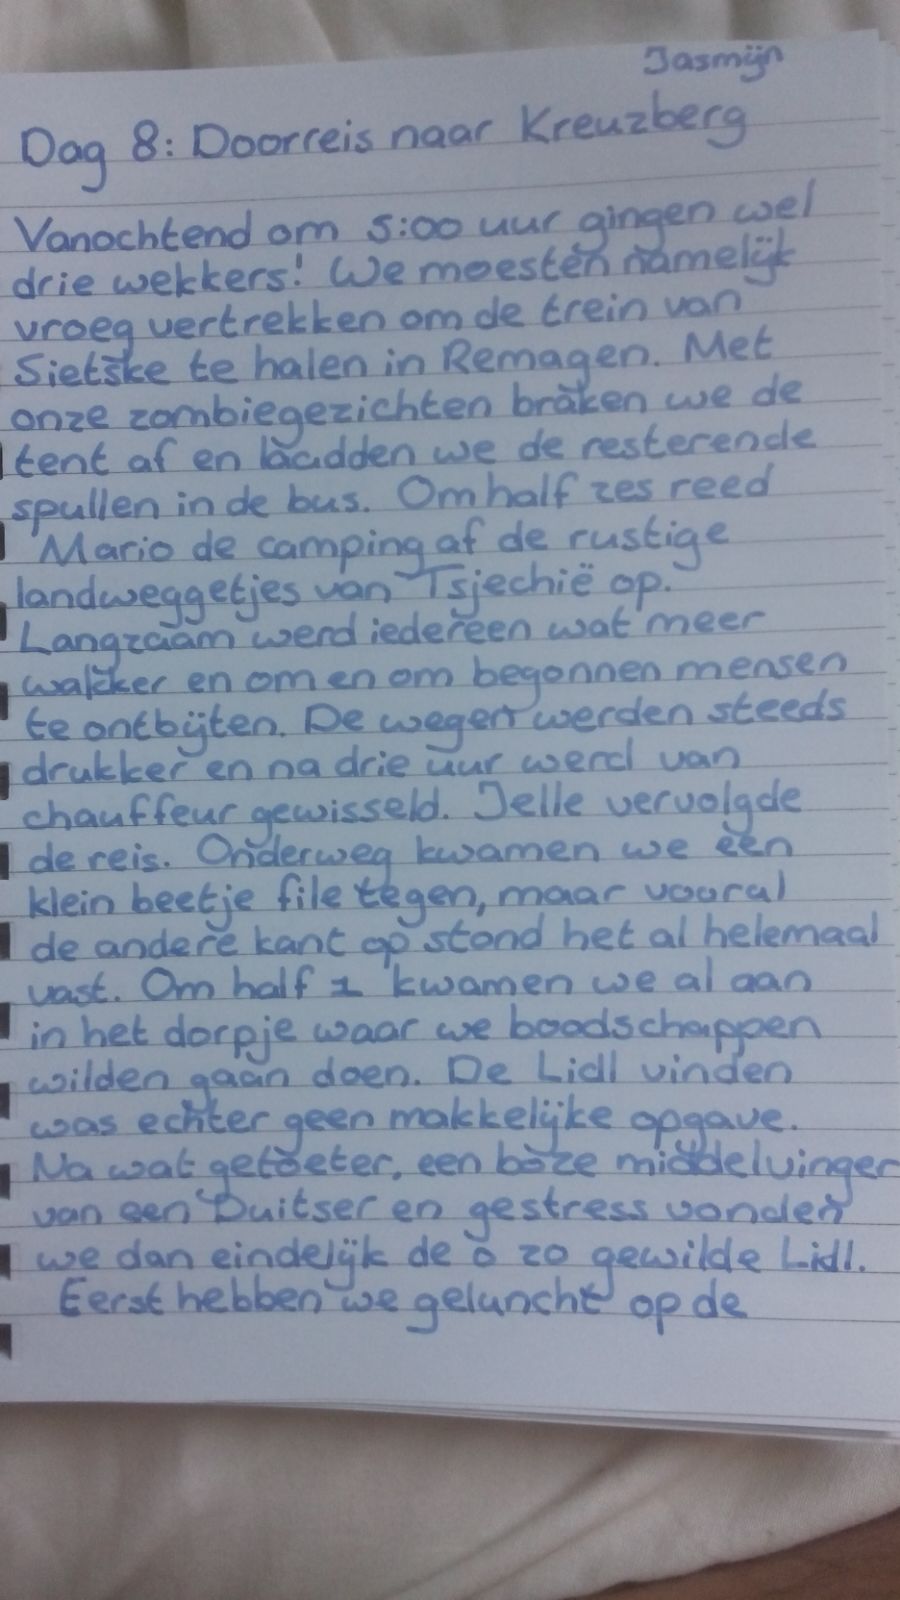 Jasmijn
Dag 8: Doorreis naar Kreuzberg
Vanochtend om 5:00 uur gingen wel
drie wekkers! We moesten namelijk
vroeg vertrekken om de trein van
Sietske te halen in Remagen. Met
onze zombiegezichten braken we de
tent af en laadden we de resterende
spullen in de bus. Om half zes reed
Mario de camping af de rustige
landweggetjes van Tsjechië op.
Langzaam werd iedereen wat meer
wakker en om en om begonnen mensen
te ontbijten. De wegen werden steeds
drukker en na drie uur werd van
chauffeur gewisseld. Jelle vervolgde
de reis. Onderweg kwamen we een
klein beetje file tegen, maar vooral
de andere kant op stond het al helemaal
vast. Om half 1 kwamen we al aan
in het dorpje waar we boodschappen
wilden gaan doen. De Lidl vinden
was echter geen makkelijke opgave.
Na wat getoeter, een boze middelvinger
van een Duitser en gestress vonden
we dan eindelijk de o zo gewilde Lidl.
Eerst hebben we geluncht op de